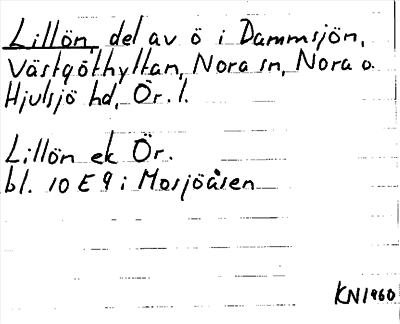 Lillön, del av ö i Dammsjön,
Västgöthyttan, Nora sn, Nora o.
Hjulsjö hd, Ör. l.
Lillön ek Ör.
bl. 10 E 9 i Mosjöåsen
KN1960